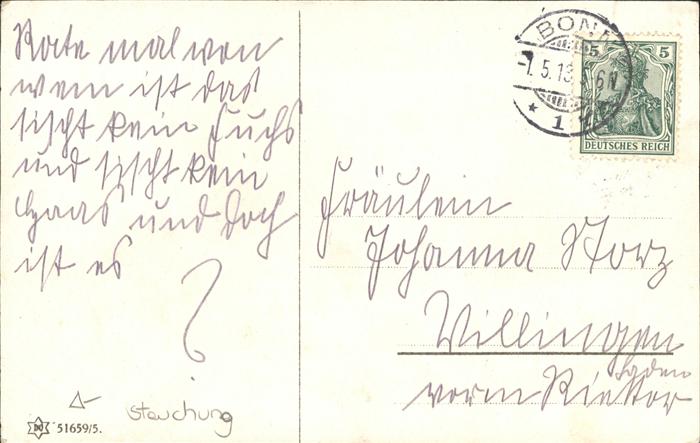 Rate mal von
wem ist das
sischt kein Fuchs
und sischt kein
Haas und doch
ist es
?
51659/5.
Stauchung
BONN
-1.5.13 6N
* 1
5 5
DEUTSCHES REICH
Fräulein
Johanna Storz
Villingen
Baden
vorm Riettor